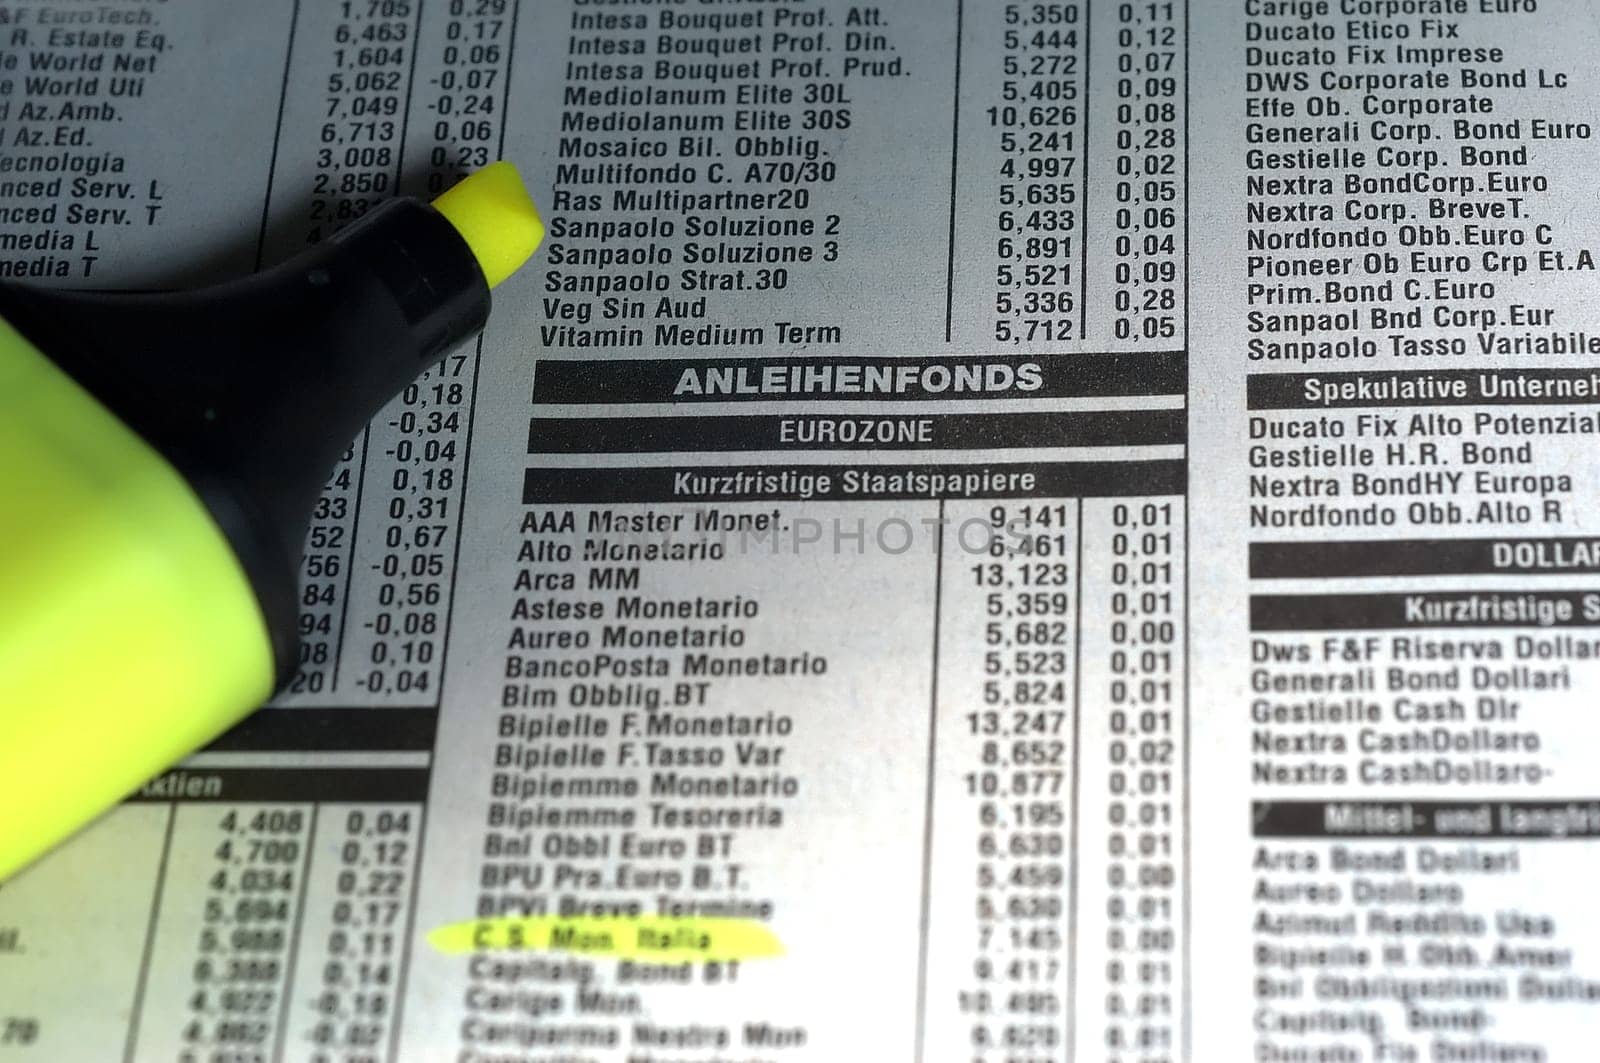 &F EuroTech. 1,705 0,29
R. Estate Eq. 6,463 0,17
World Net 1,604 0,06
e World Uti 5,062 -0,07
Az.Amb. 7,049 -0,24
Az.Ed. 6,713 0,06
ecnologia 3,008 0,23
nced Serv. L 2,850
nced Serv. T
media L
media T
,17
0,18
-0,34
-0,04
0,18
33 0,31
52 0,67
56 -0,05
84 0,56
94 -0,08
0,10
20 -0,04
ktien
4,408 0,04
4,700 0,12
4,034 0,22
5,694 0,17
5,988 0,11
6,388 0,14
Intesa Bouquet Prof. Att. 5,350 0,11
Intesa Bouquet Prof. Din. 5,444 0,12
Intesa Bouquet Prof. Prud. 5,272 0,07
Mediolanum Elite 30L 5,405 0,09
Mediolanum Elite 30S 10,626 0,08
Mosaico Bil. Obblig. 5,241 0,28
Multifondo C. A70/30 4,997 0,02
Ras Multipartner20 5,635 0,05
Sanpaolo Soluzione 2 6,433 0,06
Sanpaolo Soluzione 3 6,891 0,04
Sanpaolo Strat.30 5,521 0,09
Veg Sin Aud 5,336 0,28
Vitamin Medium Term 5,712 0,05
ANLEIHENFONDS
EUROZONE
Kurzfristige Staatspapiere
AAA Master Monet. 9,141 0,01
Alto Monetario 6,461 0,01
Arca MM 13,123 0,01
Astese Monetario 5,359 0,01
Aureo Monetario 5,682 0,00
BancoPosta Monetario 5,523 0,01
Bim Obblig.BT 5,824 0,01
Bipielle F.Monetario 13,247 0,01
Bipielle F.Tasso Var 8,652 0,02
Bipiemme Monetario 10,877 0,01
Bipiemme Tesoreria 6,195 0,01
Bnl Obbl Euro BT 6,630 0,01
BPU Pra.Euro B.T. 5,459 0,00
BPVi Breve Termine 5,630 0,01
C.S. Mon. Italia 7,145 0,00
Capitalg. Bond BT 0,01
Carige Mon. 0,01
Cariparma Nextra Mon 0,01
Carige Corporate Euro
Ducato Etico Fix
Ducato Fix Imprese
DWS Corporate Bond Lc
Effe Ob. Corporate
Generali Corp. Bond Euro
Gestielle Corp. Bond
Nextra BondCorp.Euro
Nextra Corp. BreveT.
Nordfondo Obb.Euro C
Pioneer Ob Euro Crp Et.A
Prim.Bond C.Euro
Sanpaol Bnd Corp.Eur
Sanpaolo Tasso Variabile
Spekulative Unterneh
Ducato Fix Alto Potenzial
Gestielle H.R. Bond
Nextra BondHY Europa
Nordfondo Obb.Alto R
DOLLAR
Kurzfristige S
Dws F&F Riserva Dollar
Generali Bond Dollari
Gestielle Cash Dlr
Nextra CashDollaro
Nextra CashDollaro-
Mittel- und langfri
Arca Bond Dollari
Aureo Dollaro
Azimut Reddito Usa
Bipielle H.Obb.Amer
Bnl Obbligazioni Dolla
Capitalg. Bond-
Ducato Fix Dollaro